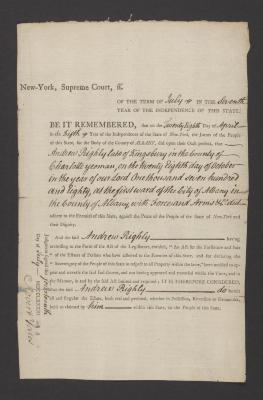 New-York, Supreme Court, ss.
OF THE TERM OF July IN THE Seventh
YEAR OF THE INDEPENDENCE OF THIS STATE.
BE IT REMEMBERED, that on the Twenty Eighth Day of April
in the Sixth Year of the Independence of the State of New-York, the Jurors of the People
of this State, for the Body of the County of ALBANY, did upon their Oath present, that
Andrew Righly late of Kingsbury in the County of
Charlotte yeoman, on the twenty Eighth day of October
in the year of our Lord One thousand seven hundred
and Eighty, at the first ward of the City of Albany in
the County of Albany, with Force and Arms &c. did
adhere to the Enemies of this State, against the Peace of the People of the State of New-York and
their Dignity:
And the said Andrew Righly having
according to the Form of the Act of the Legislature, entitled, "An Act for the Forfeiture and Sale
"of the Estates of Persons who have adhered to the Enemies of this State, and for declaring the
"Sovereignty of the People of this State in respect to all Property within the same," been notified to ap-
pear and traverse the said Indictment, and not having appeared and traversed within the Time, and in
the Manner, in and by the said Act limited and required; IT IS THEREFORE CONSIDERED,
that the said Andrew Righly do forfeit
all and Singular the Estate, both real and personal, whether in Possession, Reversion or Remainder,
held or claimed by him within this State, to the People of this State.
Day of July